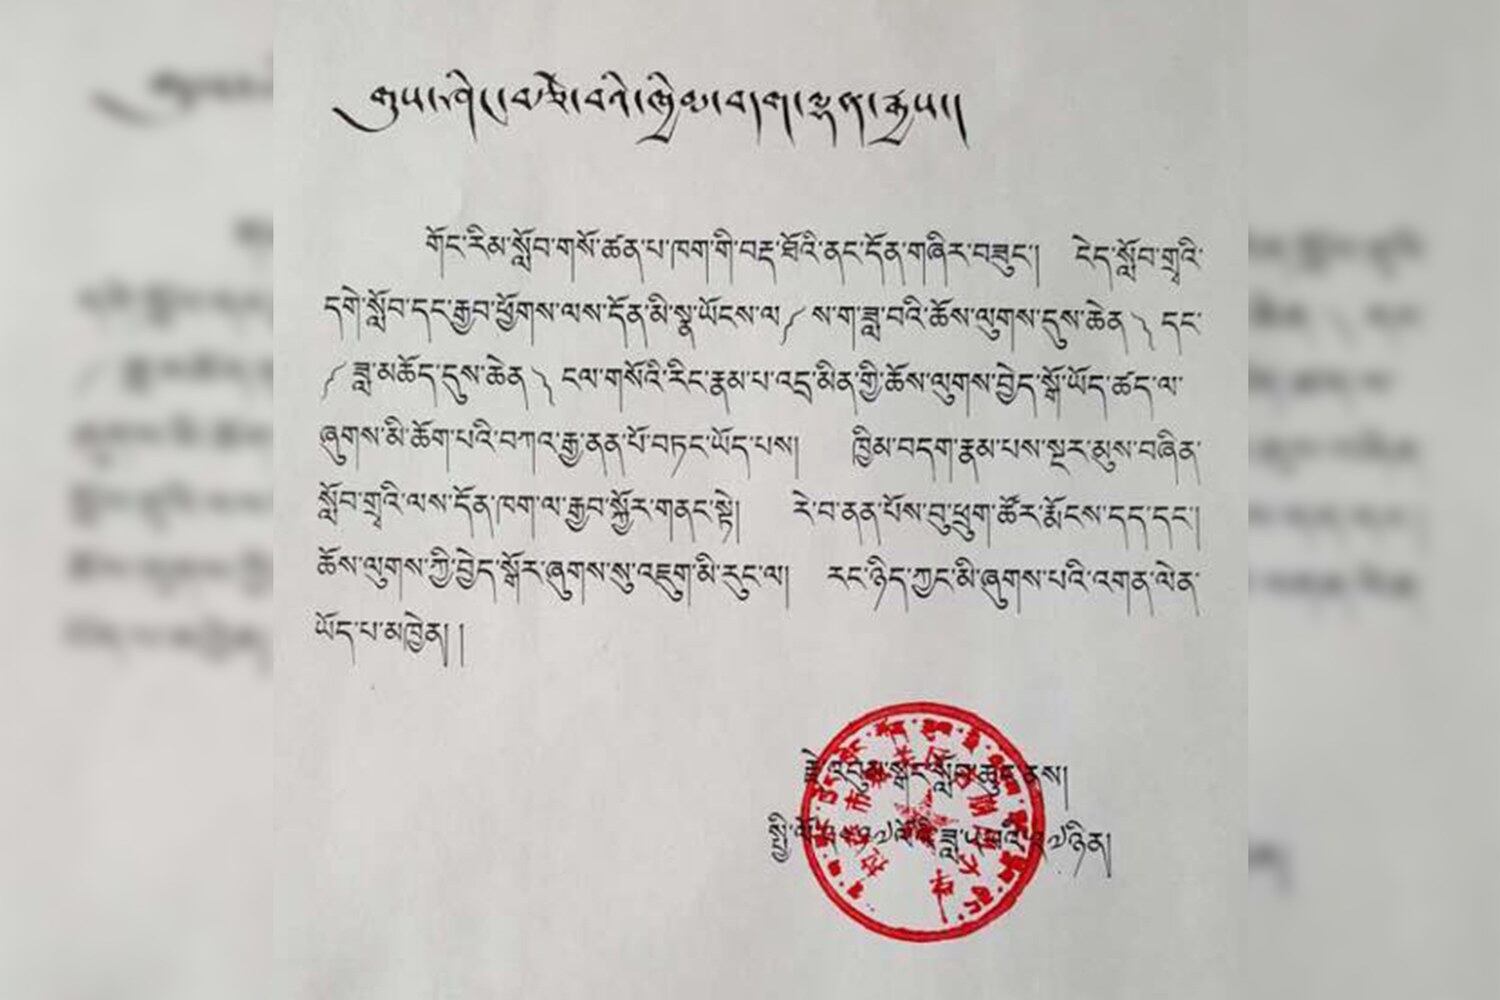 གོང་རིམ་སློབ་གསོ་ཚན་པ་ཁག་གི་བརྡ་ཐོའི་ནང་དོན་གཞིར་བཟུང་། ངེད་སློབ་གྲྭའི་
དགེ་སློབ་དང་རྒྱབ་ཕྱོགས་ལས་དོན་མི་སྣ་ཡོངས་ལ༼ ས་ག་ཟླ་བའི་ཆོས་ལུགས་དུས་ཆེན ༽ དང་
༼ ཟླ་མཆོད་དུས་ཆེན ༽ ངལ་གསོའི་རིང་རྣམ་པ་འདྲ་མིན་གྱི་ཆོས་ལུགས་བྱེད་སྒོ་ཡོད་ཚད་ལ་
ཞུགས་མི་ཆོག་པའི་བཀའ་རྒྱ་ནན་པོ་བཏང་ཡོད་པས། ཁྱིམ་བདག་རྣམ་པས་སྔར་མུས་བཞིན་
སློབ་གྲྭའི་ལས་དོན་ཁག་ལ་རྒྱབ་སྐྱོར་གནང་སྟེ། རེ་བ་ནན་པོས་བུ་ཕྲུག་ཚོར་རྨོངས་དད་དང་།
ཆོས་ལུགས་ཀྱི་བྱེད་སྒོར་ཞུགས་སུ་འཇུག་མི་རུང་ལ། རང་ཉིད་ཀྱང་མི་ཞུགས་པའི་འགན་ལེན་
ཡོད་པ་མཁྱེན། །
རྩེ་འབུམ་སྒང་སློབ་ཆུང་ནས།